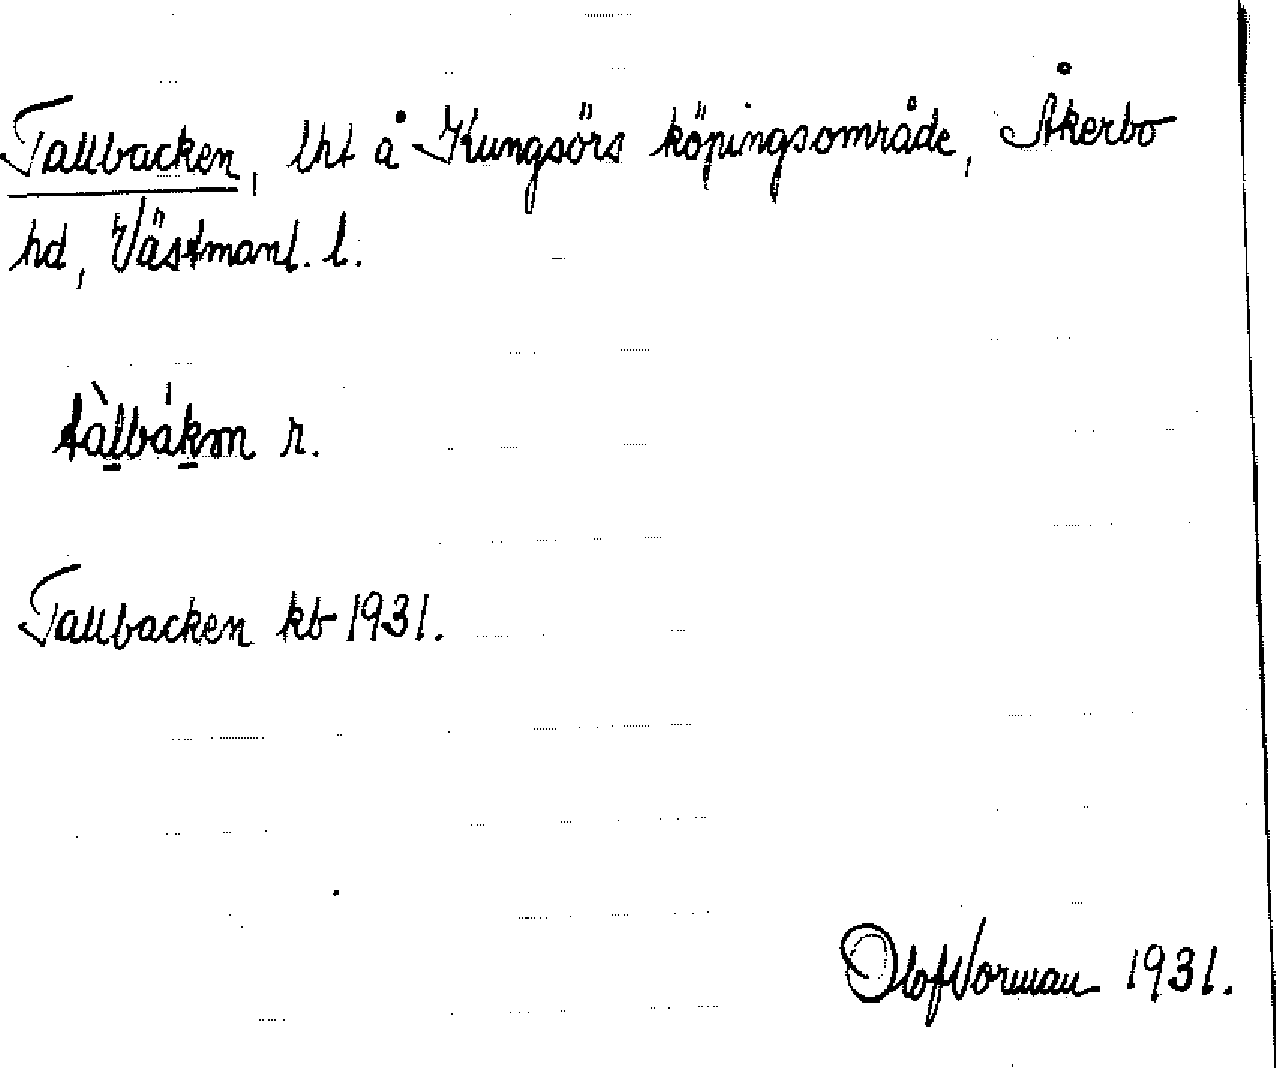 Tallbacken, lht å Kungsörs köpingsområde, Åkerbo
hd, Västmanl. l.
tàlbákm r.
Tallbacken kb 1931.
Olof Vorman 1931.